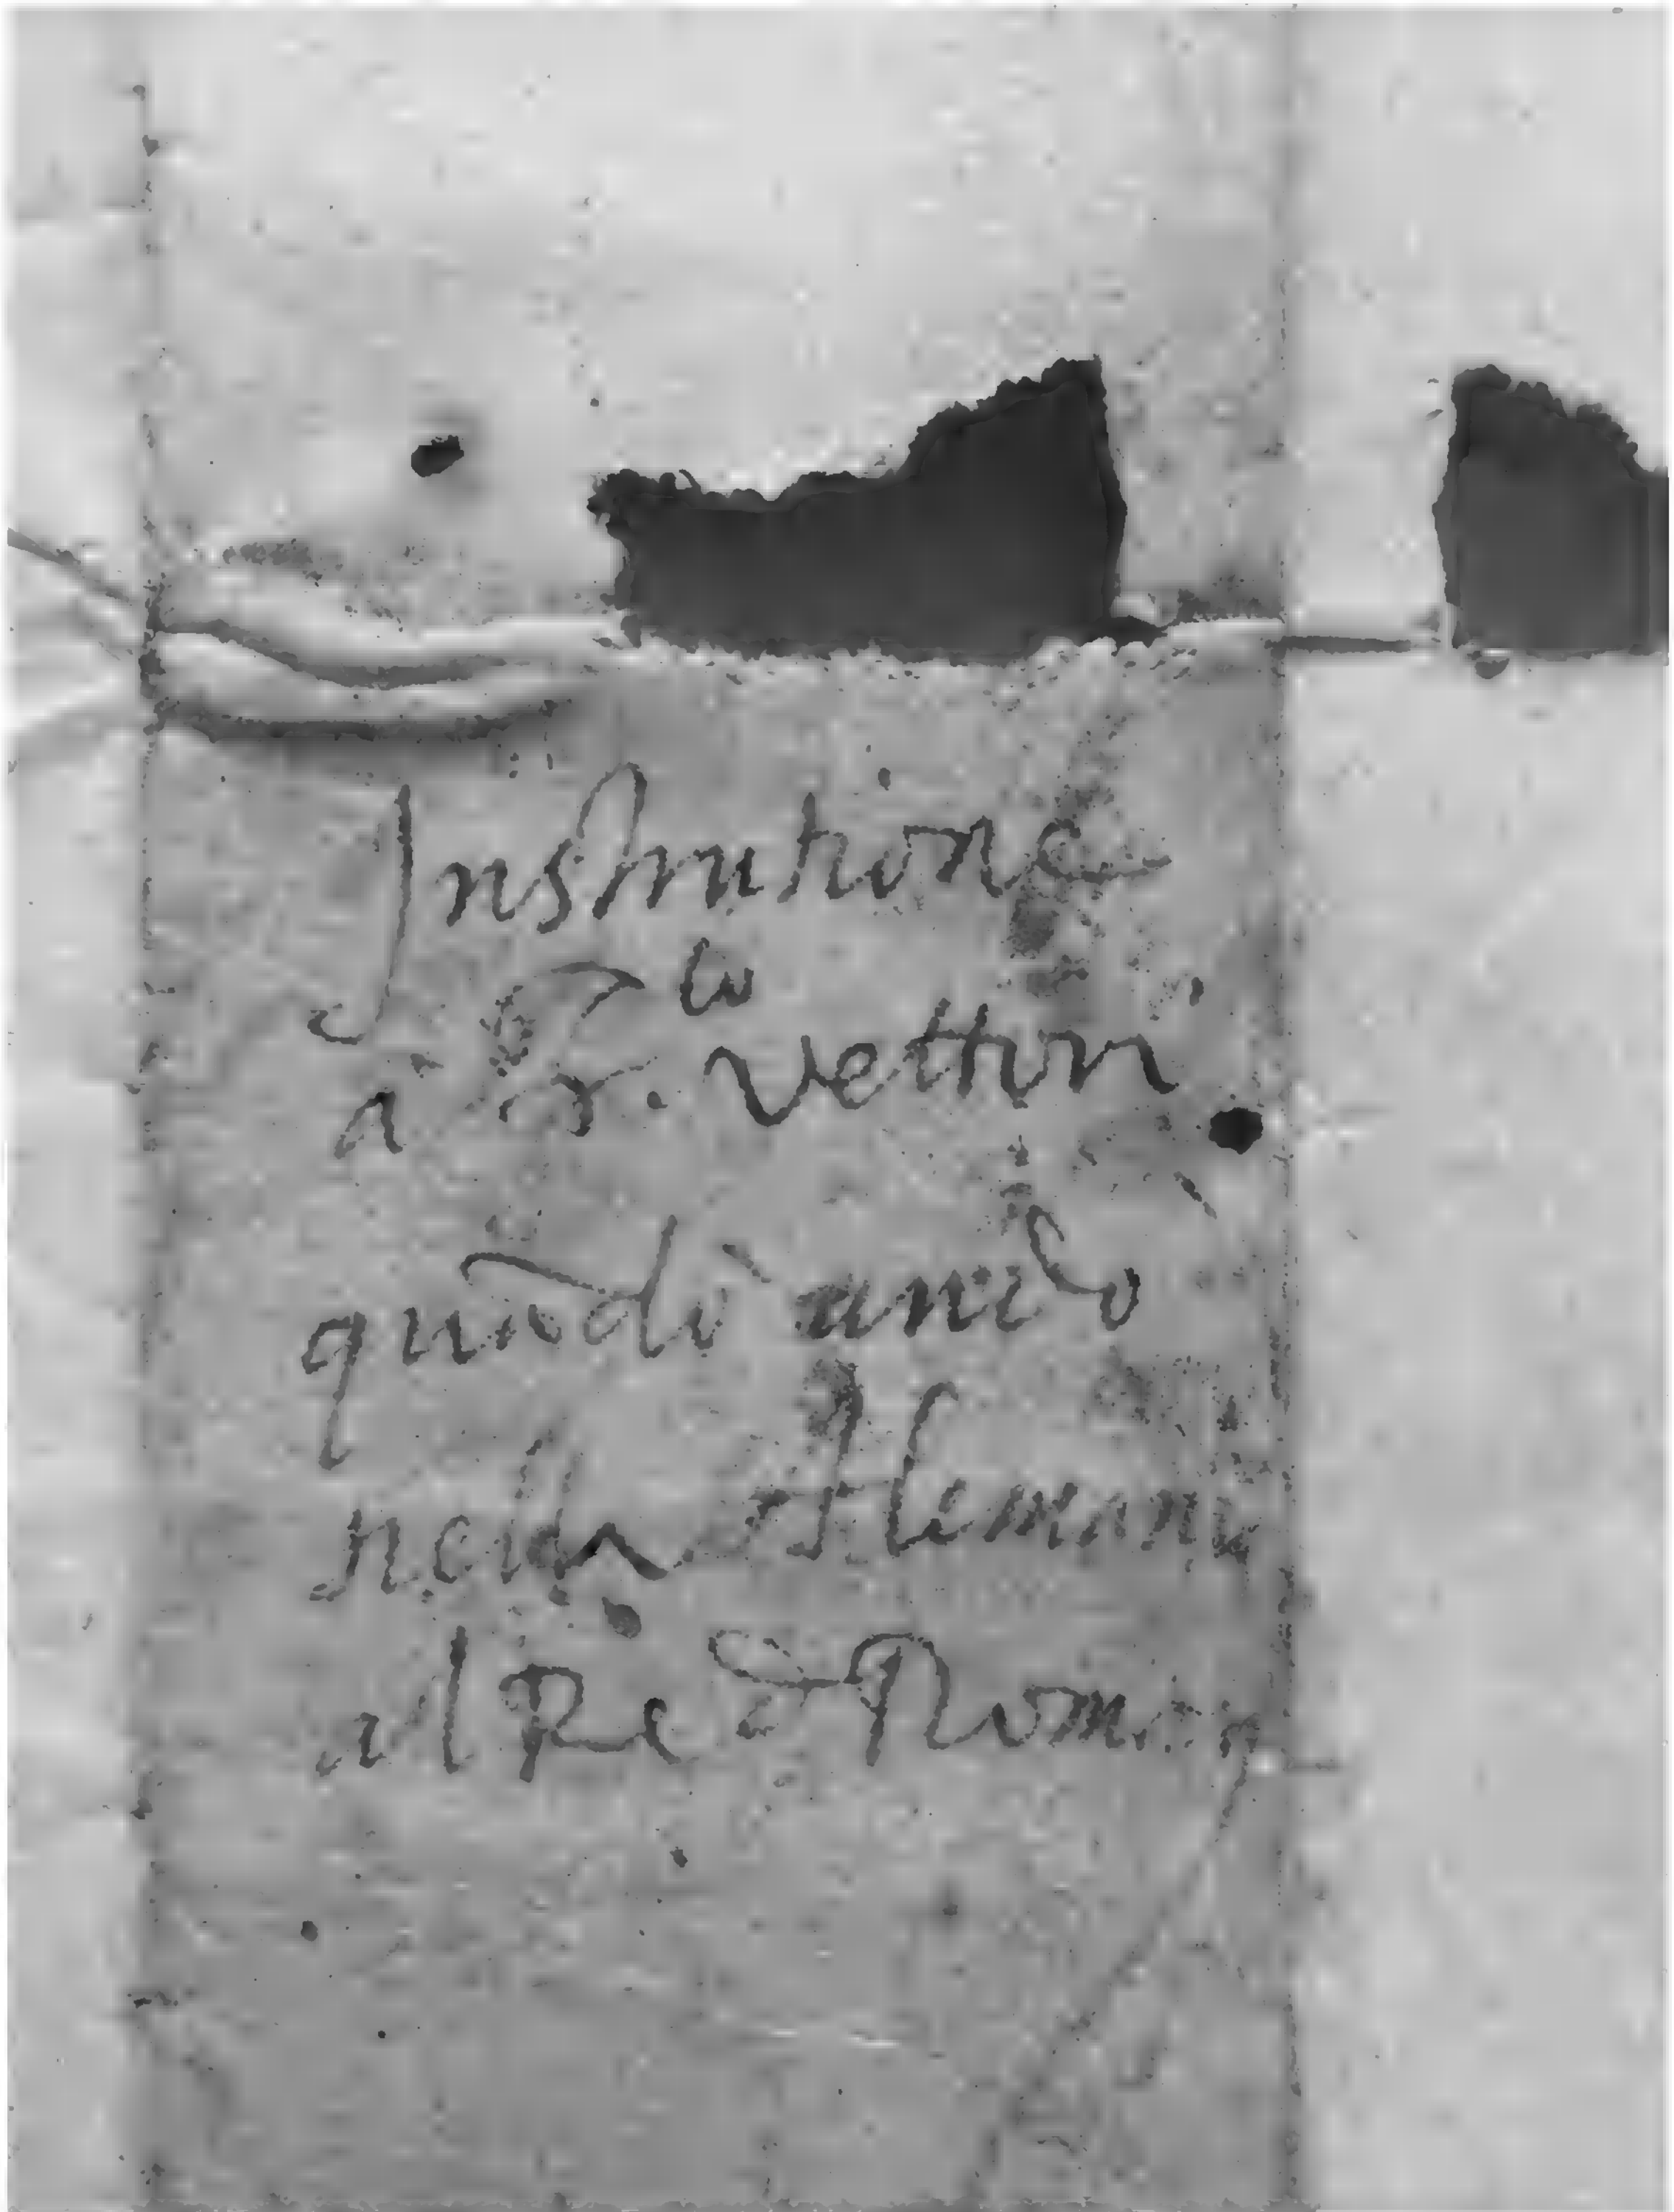 Instrutione
à F.co Vettori
quãdo andò
nella Alemania
al Re de Romani